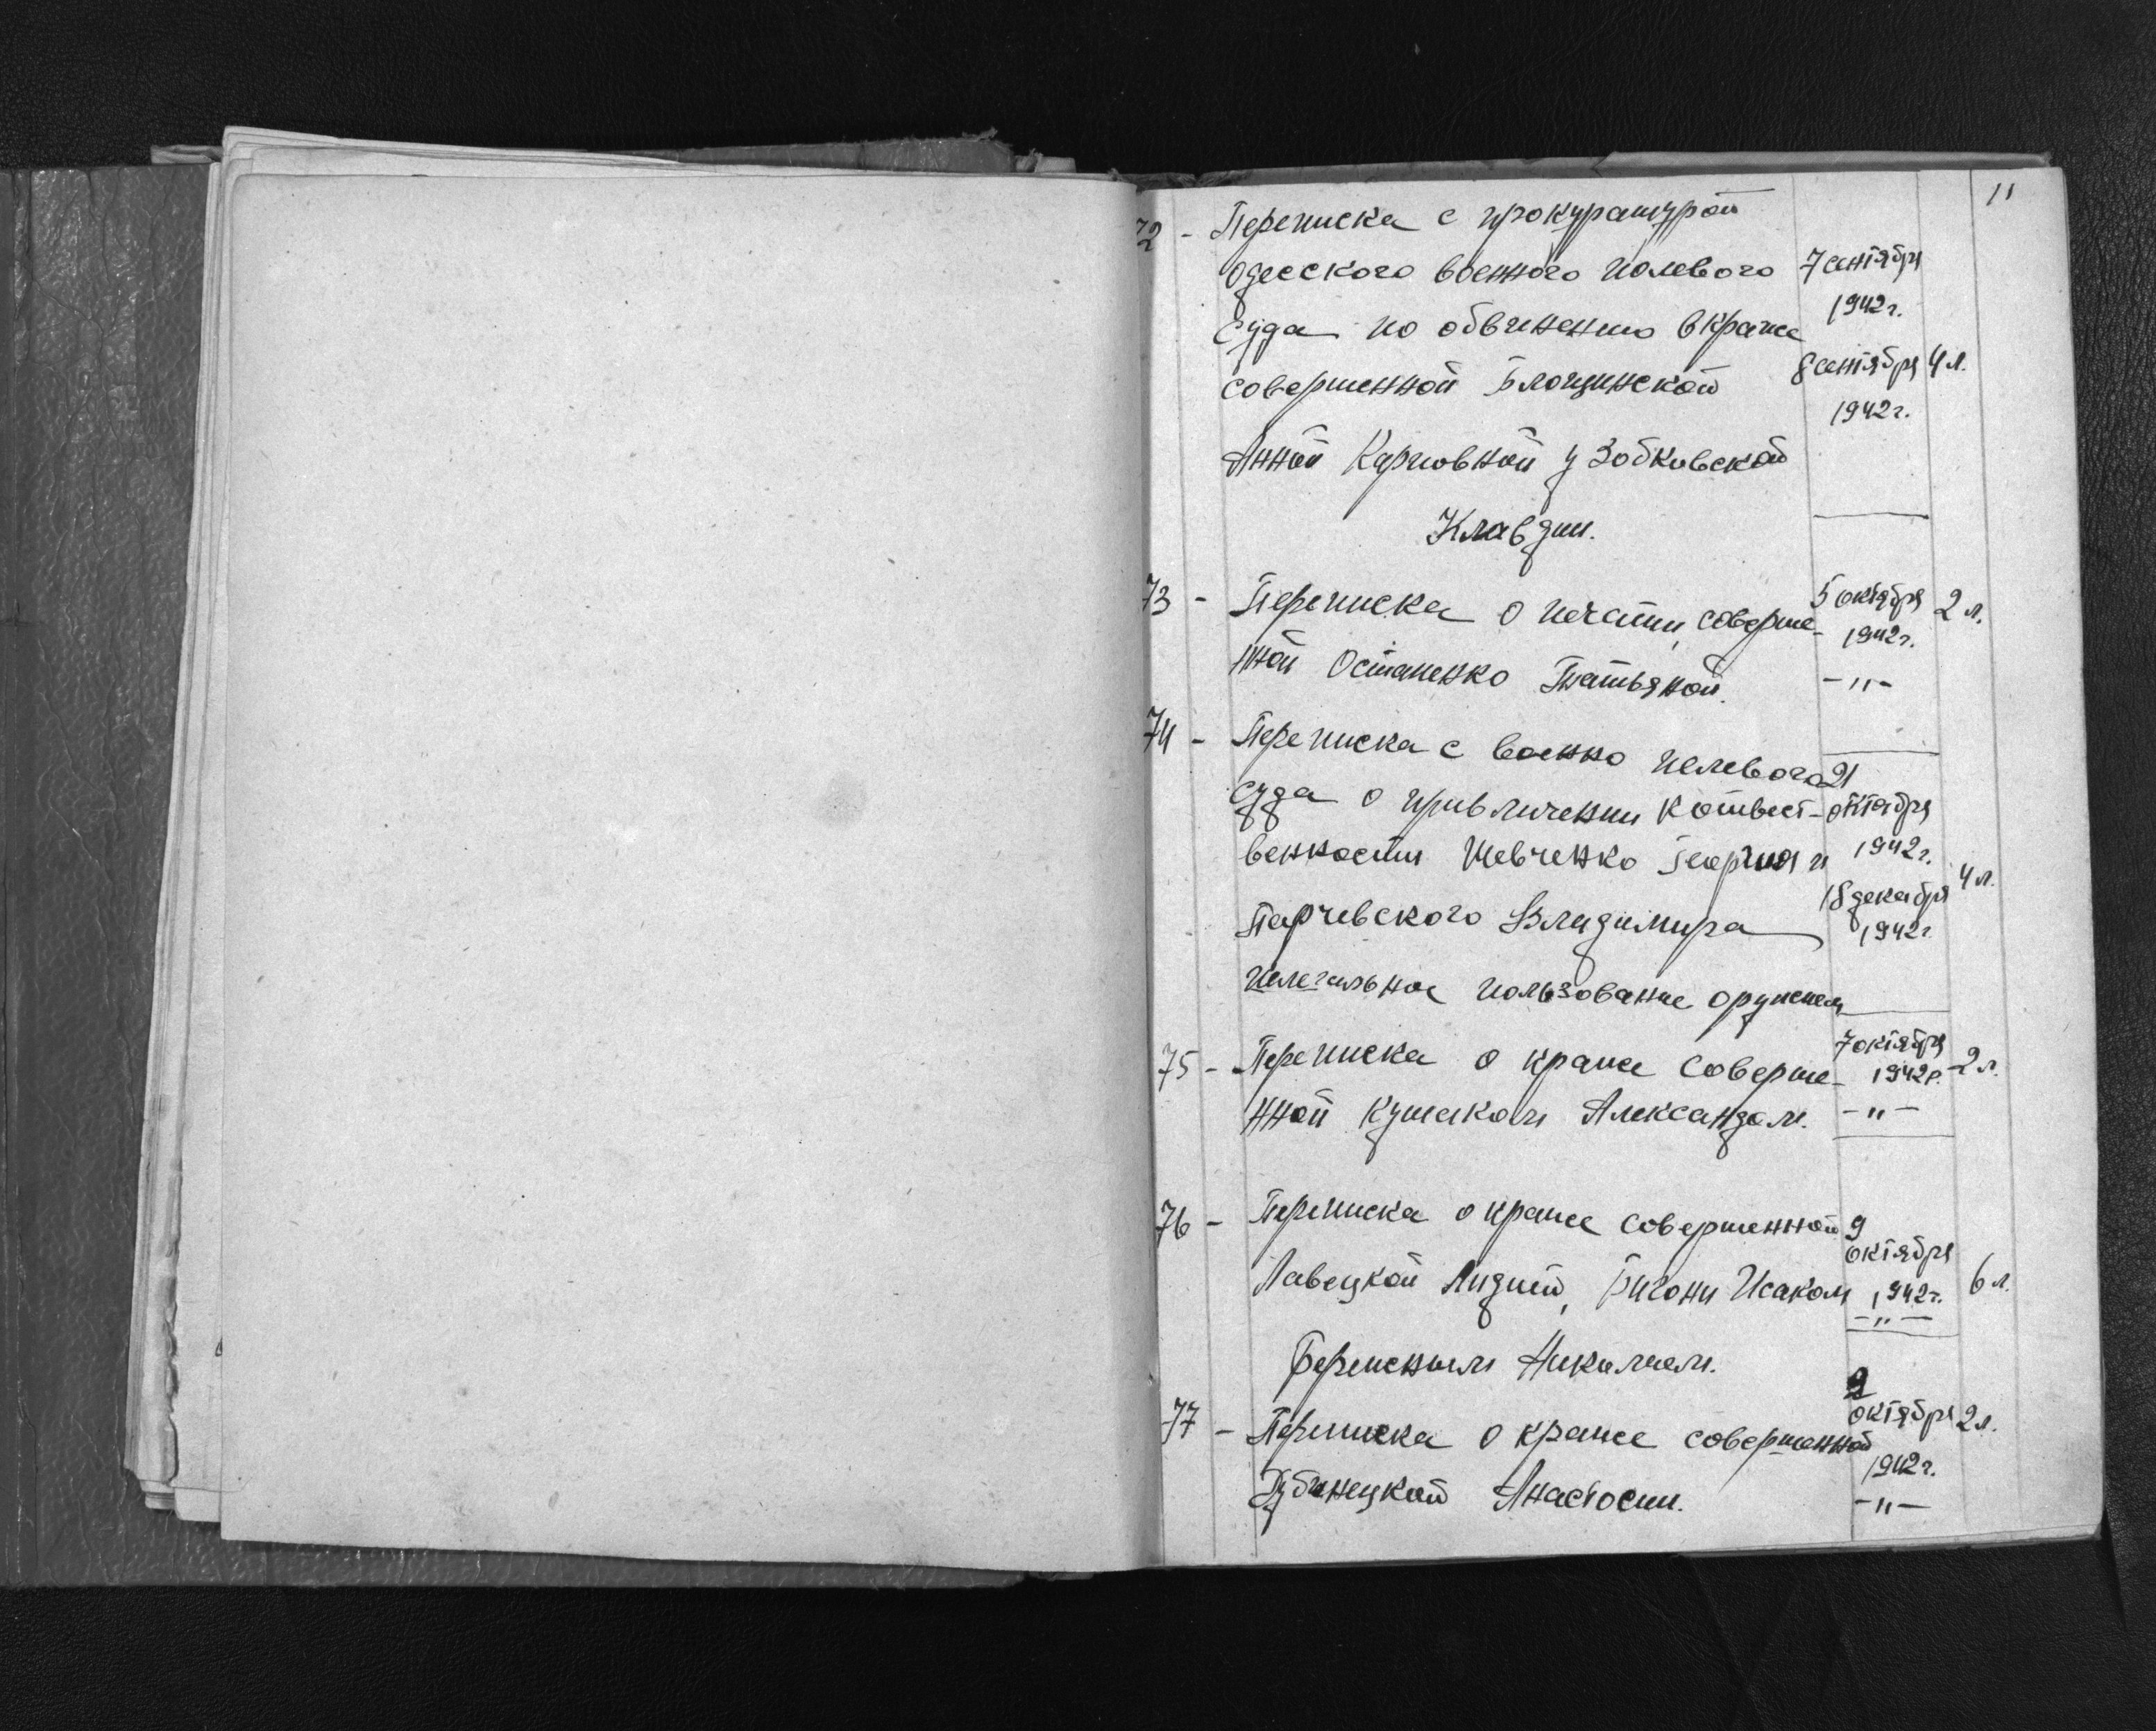 11
72 - Переписка с прокуратурой
одесского военного полевого 7 сентября
1942 г.
суда по обвинению в краже
8 сентября 4 л.
совершенной Блощинской
1942 г.
Анной Карповной у Зобковской
Клавдии.
73 - Переписка о печати, соверше- 5 октября 2 л.
1942 г.
нной Остапенко Татьяной. -"-
74 - Переписка с военно полевого 21
суда о привличении к ответст- октября
венности Шевченко Георгия и 1942 г.
18 декабря 4 л.
Парчевского Владимира 1942 г
нелегальное пользование оружием
75 - Переписка о краже соверше- 7 октября 2 л.
1942 г.
нной Александом. -"-
76 - Переписка о краже совершенной 9
октября
Лавецкой Лидией, Исаком 1942 г. 6 л.
-"-
Николаем.
9
77 - Переписка о краже совершенной октября 2 л.
1942 г.
Дубинецкой Анастосии. -"-